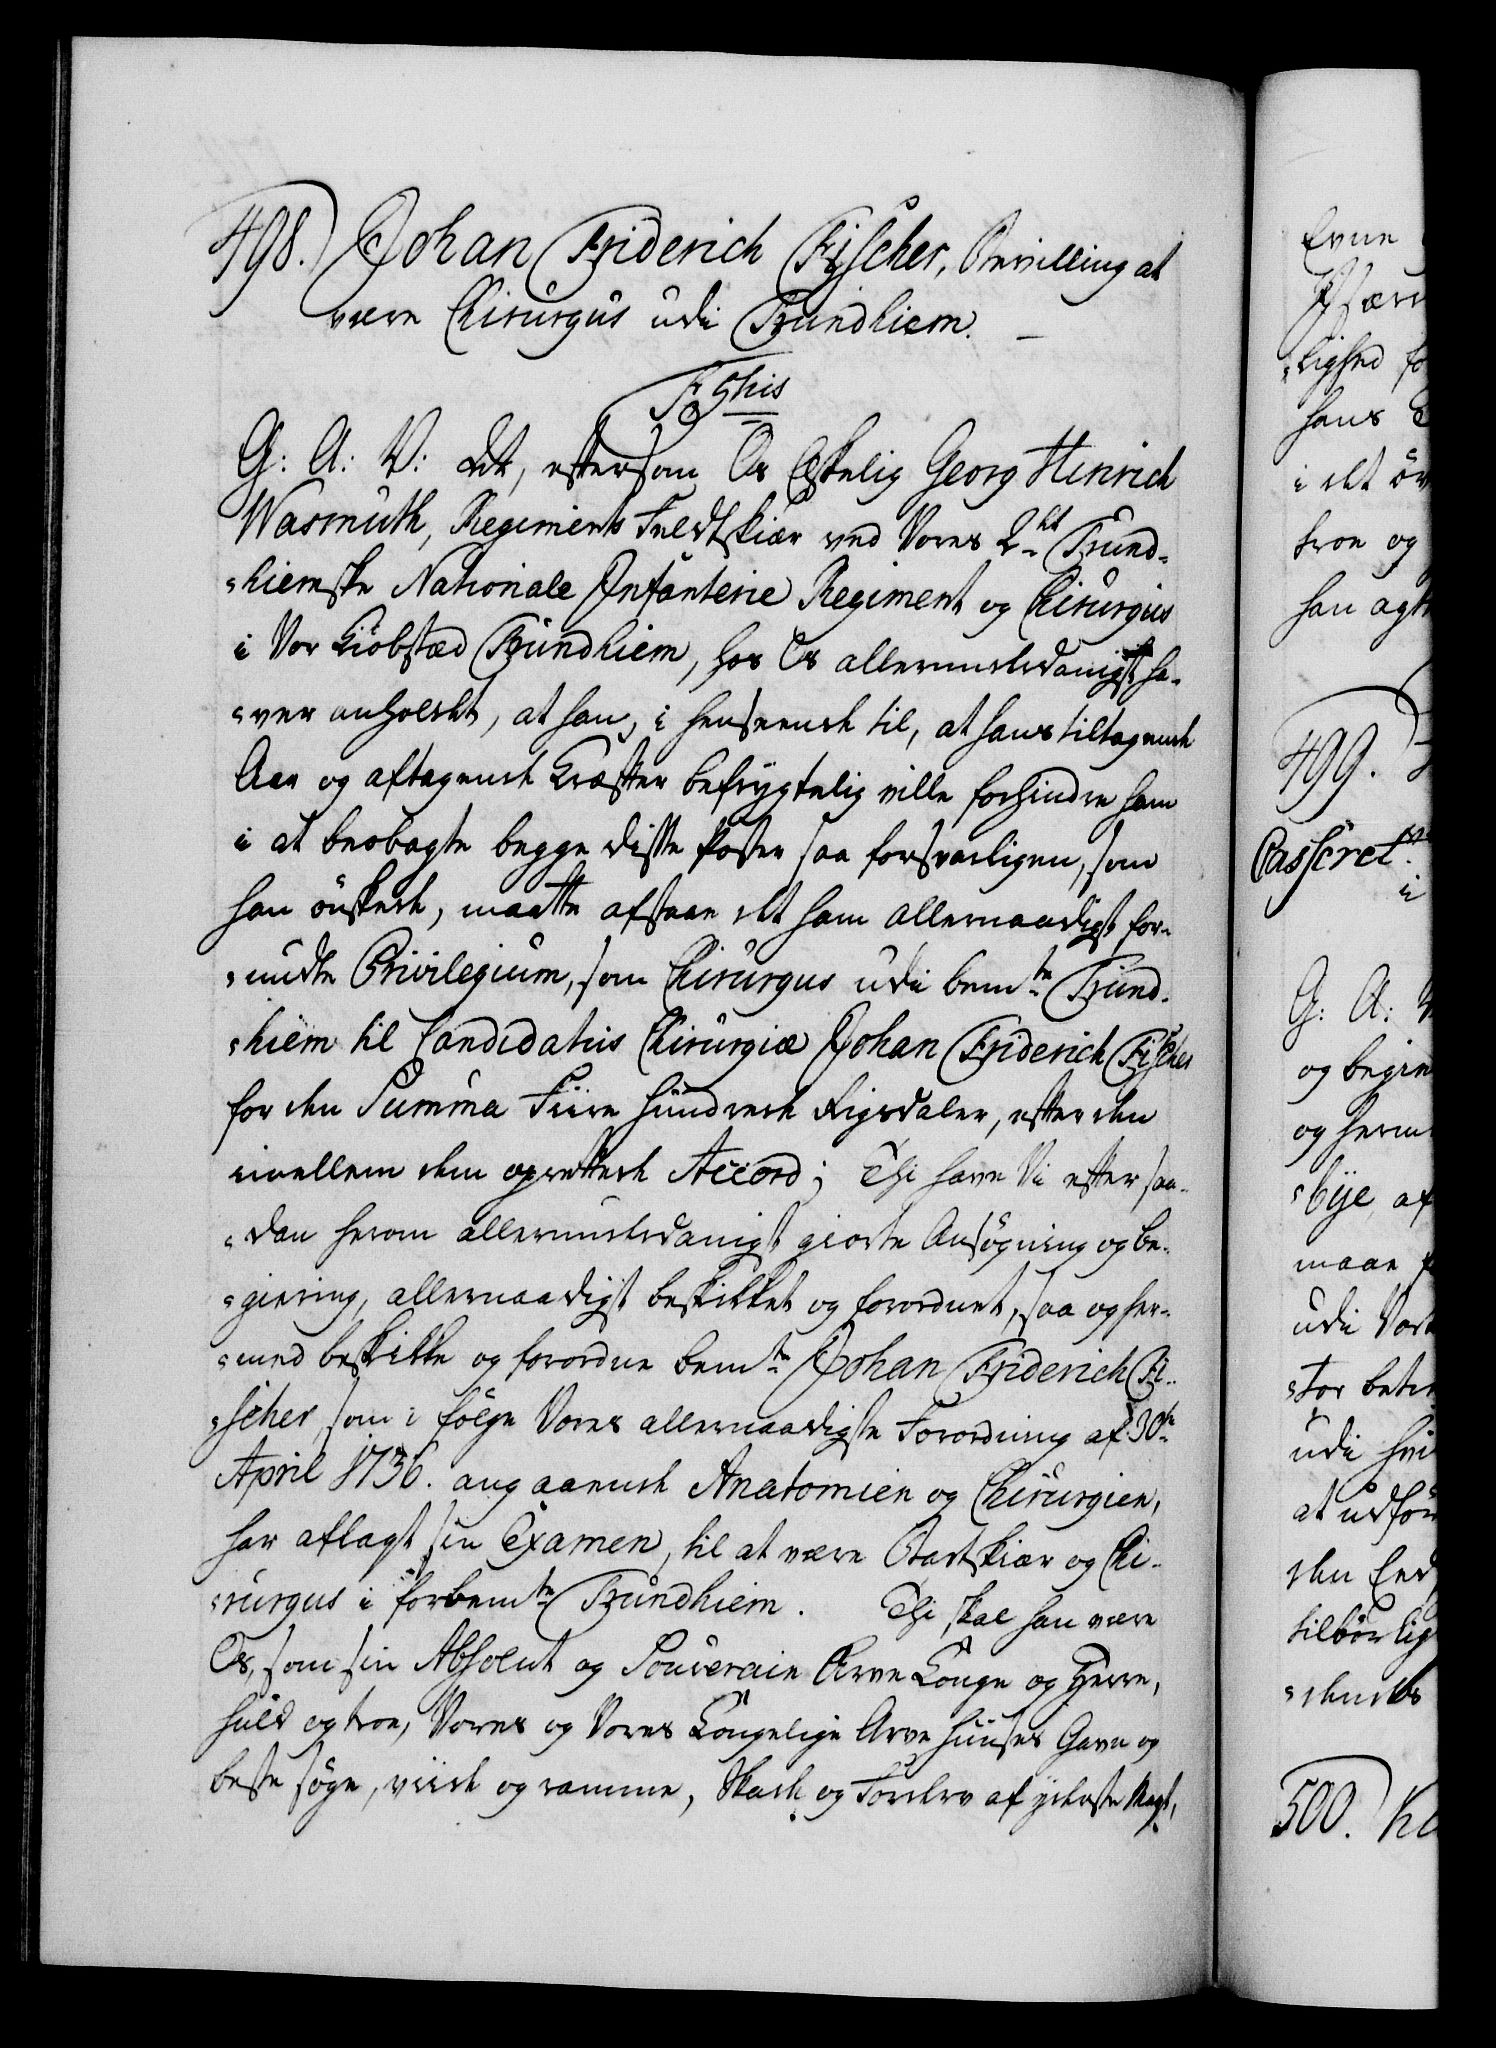 498. Johan Friderich Fischer, Bevilling at
være Chirurgus udi Trundhiem.
F 5this
G: A: V: at, eftersom Os Elskelig Georg Hinrich
Wasmuth, Regiments Feldtskiær ved Vores 2det Trund-
hiemske Nationale Infanterie Regiment og Chirurgus
i Vor Kiøbstæd Trundhiem, hos Os allerunderdanigst ha-
ver anholdet, at han, i henseende til, at hans tiltagende
Aar og aftagende Kræfter befrygtelig ville forhindre ham
i at beobagte begge disse Poster saa forsvarligen, som
han ønskede, maatte afstaae det ham allernaadigst for-
undte Privilegium, som Chirurgus udi bemte Trund-
hiem til Candidatus Chirurgiæ Johan Friderich Fischer
for den Summa Fiire Hundrede Rigsdaler, efter den
imellem dem oprettede Accord; Thi have Vi efter saa-
dan herom allerunderdanigst giorte Ansøgning og be-
giering, allernaadigst beskikket og forordnet, saa og her-
med beskikke og forordne bemte Johan Friderich Fi-
scher, som i følge Vores allernaadigste Forordning af 30te
April 1736. angaaende Anatomien og Chirurgien,
har aflagt sin Examen, til at være Bartskiær og Chi-
rurgus i forbemte Trundhiem. Thi skal han være
Os, som sin Absolut og Souverain Arve Konge og Herre,
huld og troe, Vores og Vores Kongelige Arve Huuses Gavn og
beste søge, viide og ramme, Skade og Forderv af yderste Magt,
Evne
lighed
hans
i det
troe og
han agt
499.
Casseret
i
G: A: V
og begie
og herm
bye, af
maae
udi Vor
for betie
udi hvi
at udfør
den Eed
tilbørlig
dendes
500.